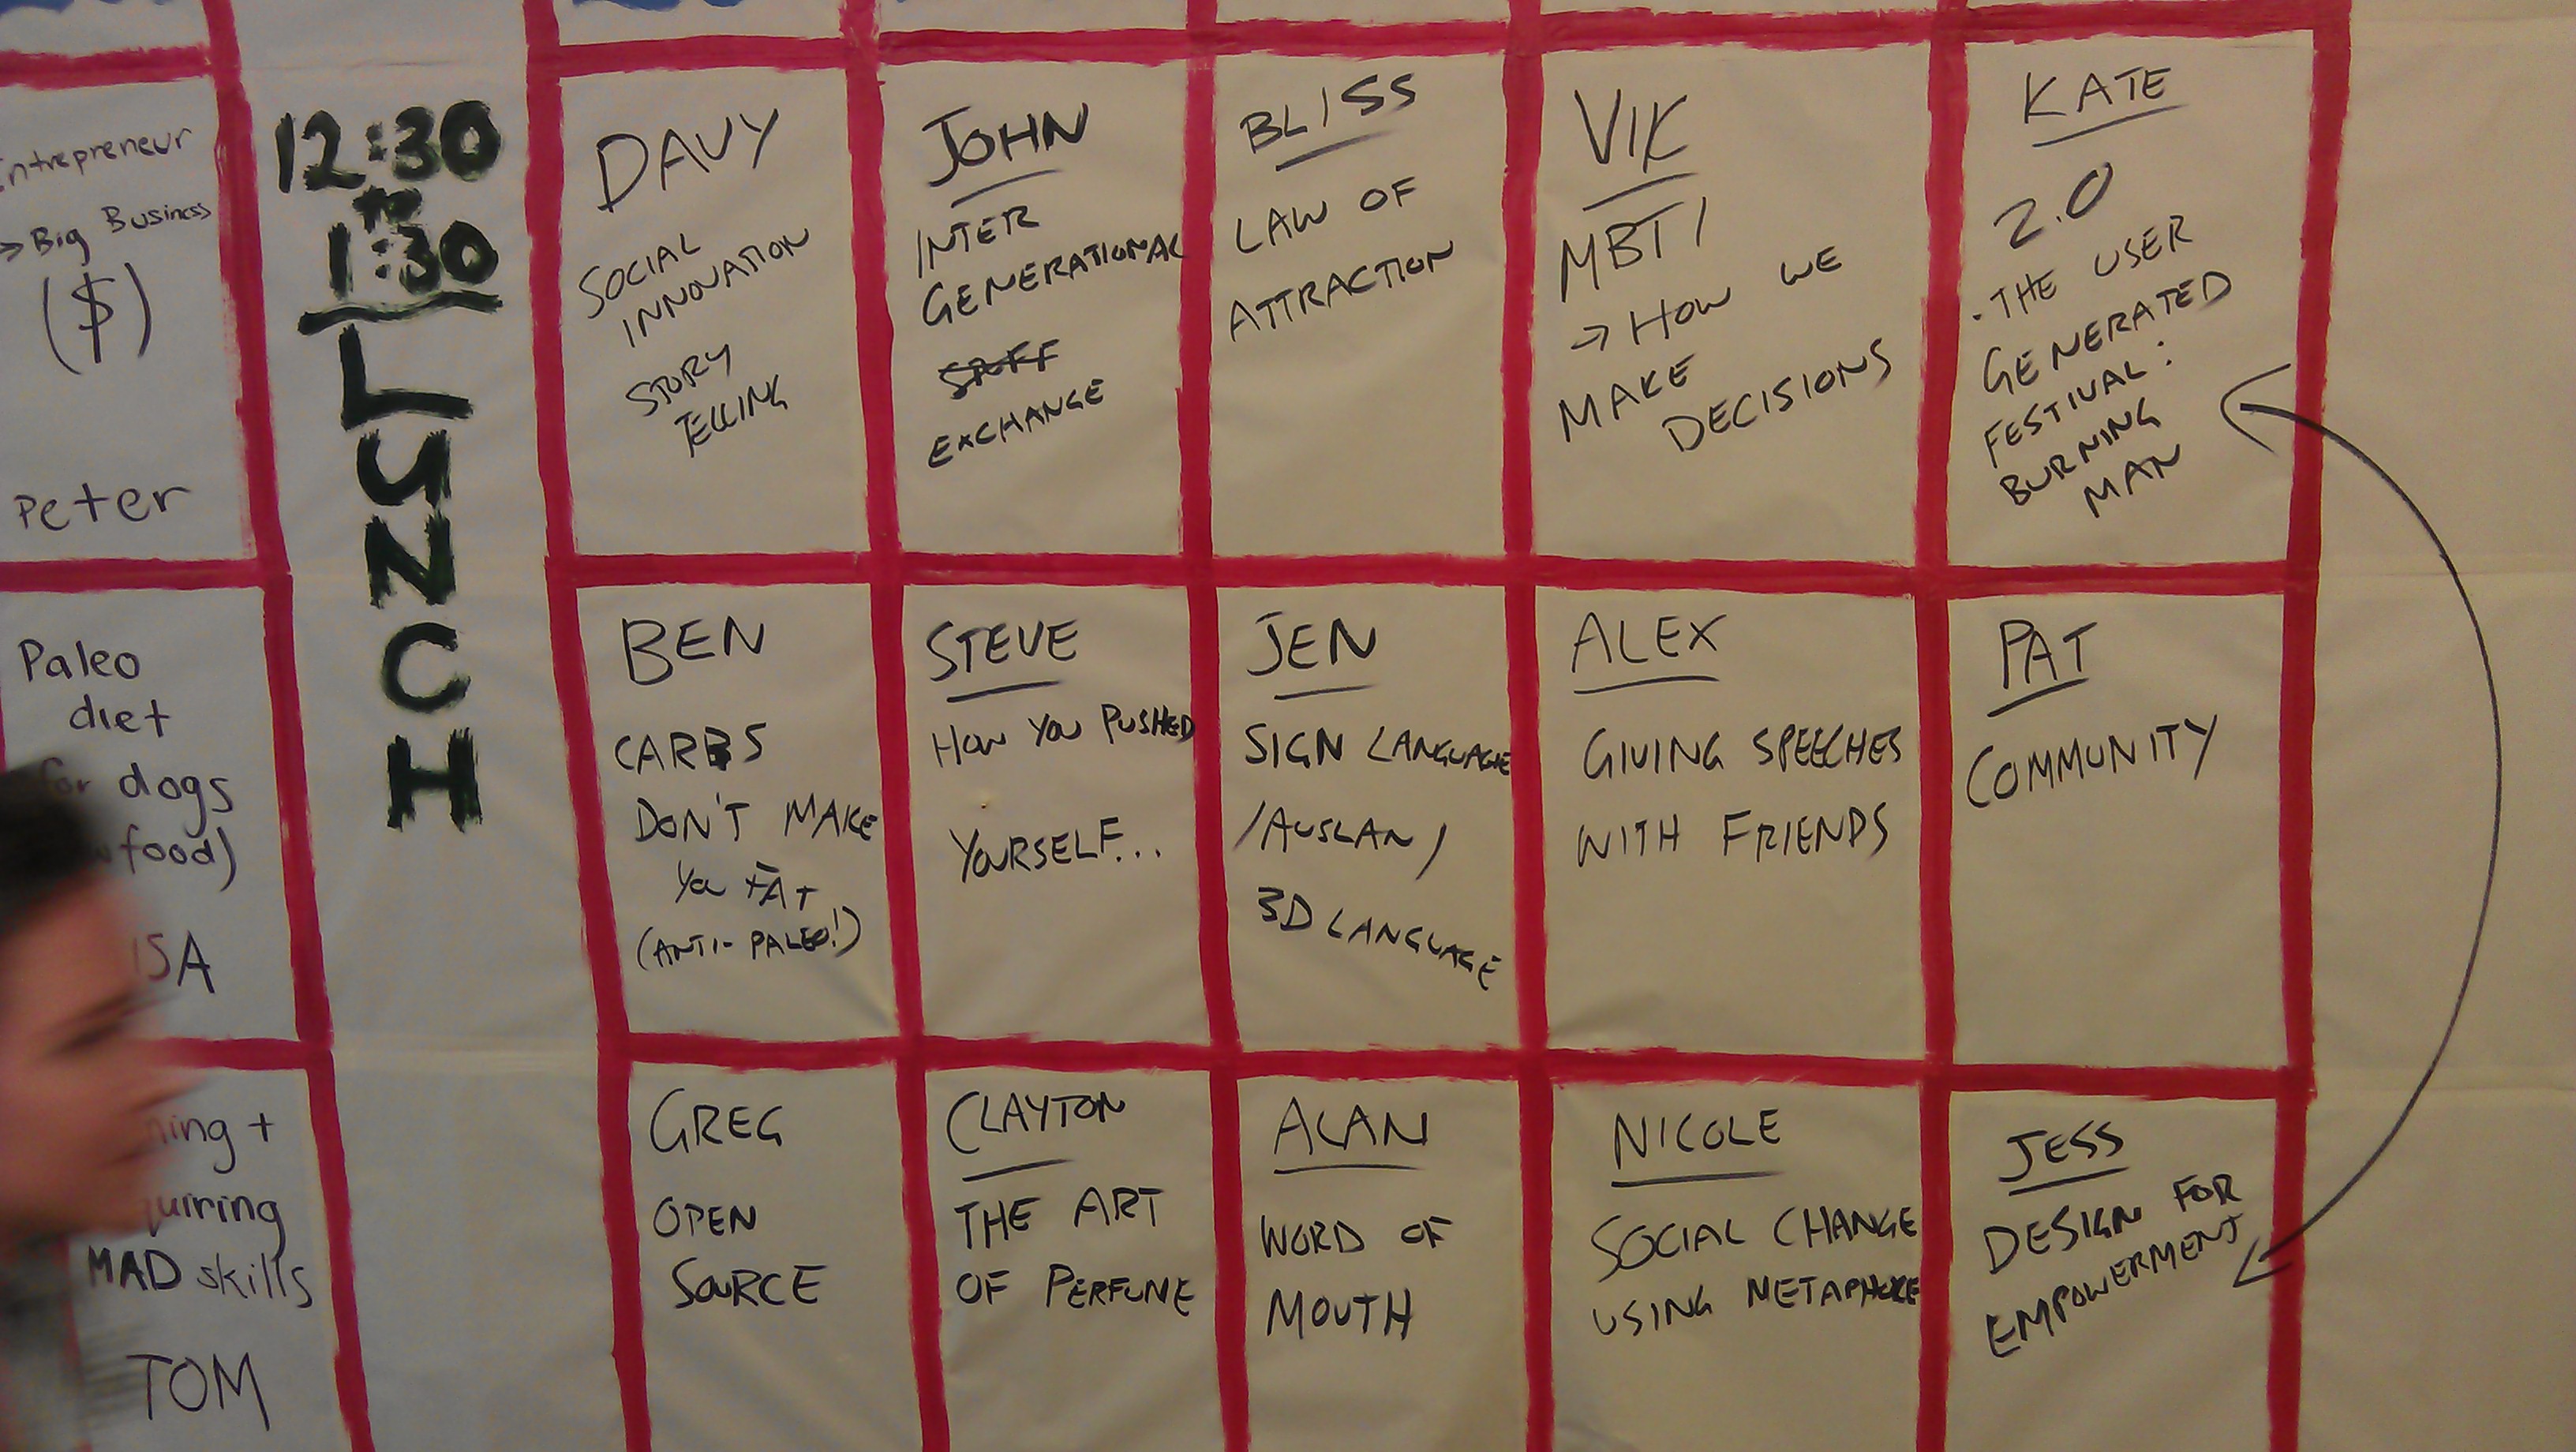 Entrepreneur
→ Big Business
($)
Peter
Paleo
diet
for dogs
food)
MAD skills
TOM
12:30
to
1:30
LUNCH
DAVY
SOCIAL
INNOVATION
STORY
TELLING
JOHN
INTER
GENERATIONAL
STUFF
EXCHANGE
BLISS
LAW OF
ATTRACTION
VIK
MBTI
→ HOW WE
MAKE
DECISIONS
KATE
2.0
. THE USER
GENERATED
FESTIVAL:
BURNING
MAN
BEN
CARBS
DON'T MAKE
YOU FAT
(ANTI-PALEO!)
STEVE
HOW YOU PUSHED
YOURSELF...
JEN
SIGN LANGUAGE
/AUSLAN/
3D LANGUAGE
ALEX
GIVING SPEECHES
WITH FRIENDS
PAT
COMMUNITY
GREG
OPEN
SOURCE
CLAYTON
THE ART
OF PERFUME
ALAN
WORD OF
MOUTH
NICOLE
SOCIAL CHANGE
USING METAPHORE
JESS
DESIGN FOR
EMPOWERMENT